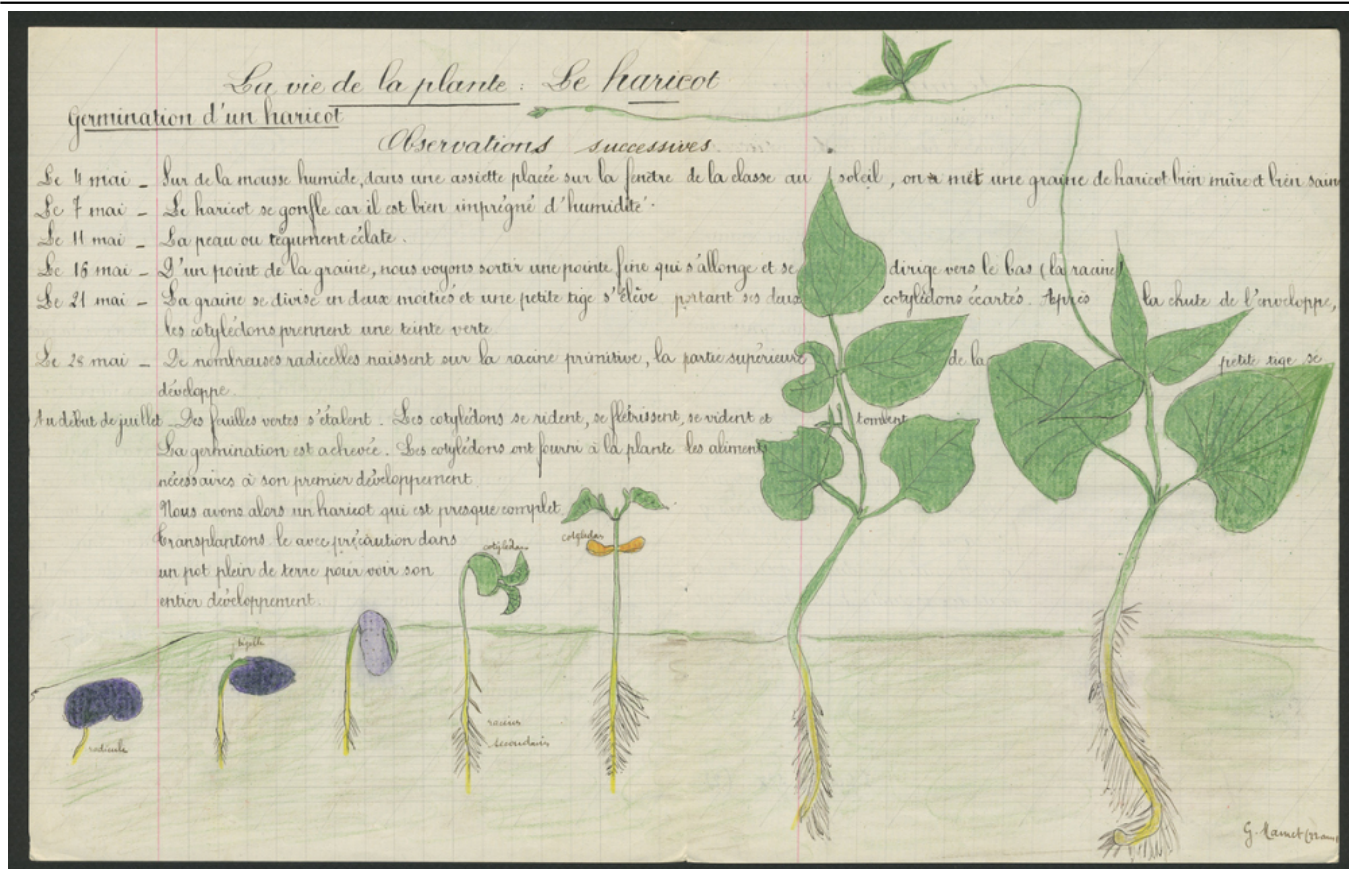 La vie de la plante : Le haricot
Germination d'un haricot
Observations successives
Le 4 mai _ Sur de la mousse humide, dans une assiette placée sur la fenêtre de la classe au soleil, on met une graine de haricot bien mûre et bien saine
Le 7 mai _ Le haricot se gonfle car il est bien imprégné d'humidité.
Le 11 mai _ La peau ou tégument éclate.
Le 16 mai _ D'un point de la graine, nous voyons sortir une pointe fine qui s'allonge et se dirige vers le bas (la racine)
Le 21 mai _ La graine se divise en deux moitiés et une petite tige s'élève portant ses deux cotylédons écartés. Après la chute de l'enveloppe,
les cotylédons prennent une teinte verte.
Le 28 mai _ De nombreuses radicelles naissent sur la racine primitive, la partie supérieure de la petite tige se
développe.
Au début de juillet _ Des feuilles vertes s'étalent. Les cotylédons se rident, se flétrissent, se vident et tombent
La germination est achevée. Les cotylédons ont fourni à la plante les aliments
nécessaires à son premier développement
Nous avons alors un haricot qui est presque complet
Transplantons le avec précaution dans
un pot plein de terre pour voir son
entier développement.
cotylédon
cotylédon
tigelle
radicule
racines
secondaires
G.